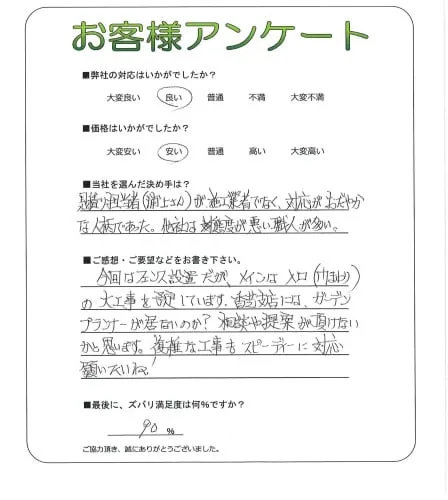 お客様アンケート
■弊社の対応はいかがでしたか?
大変良い 良い 普通 不満 大変不満
■価格はいかがでしたか?
大変安い 安い 普通 高い 大変高い
■当社を選んだ決め手は?
見積り担当者(浦上さん)が施工業者でなく、対応がおだやか
な人柄であった。他社は 態度が悪い職人が多い。
■ご感想・ご要望などをお書き下さい。
今回はフェンス設置だが、メインは入口
の大工事を予定しています。 には、ガーデン
プランナーが居ないのか? 相談や提案が頂けない
かと思います。複雑な工事もスピーディーに対応
願いたいね!
■最後に、ズバリ満足度は何%ですか?
90 %
ご協力頂き、誠にありがとうございました。